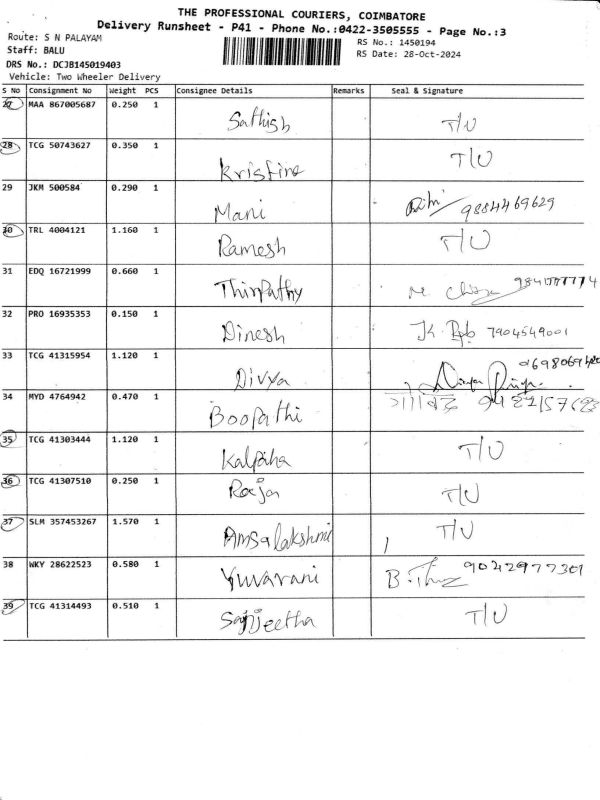 THE PROFESSIONAL COURIERS, COIMBATORE
Delivery Runsheet - P41 - Phone No.:0422-3505555 - Page No.:3
Route: S N PALAYAM
RS No.: 1450194
Staff: BALU
RS Date: 28-Oct-2024
DRS No.: DCJB145019403
Vehicle: Two Wheeler Delivery
S No Consignment No Weight PCS Consignee Details Remarks Seal & Signature
27 MAA 867005687 0.250 1 Sathish T/U
28 TCG 50743627 0.350 1 Kristine T/U
29 JKM 500584 0.290 1 Mani 9884469629
30 TRL 4004121 1.160 1 Ramesh T/U
31 EDQ 16721999 0.660 1 Thirpathy M.
32 PRO 16935353 0.150 1 Dinesh 7904549001
33 TCG 41315954 1.120 1 Divya
34 MYD 4764942 0.470 1 Boopathi
35 TCG 41303444 1.120 1 Kalpana T/U
36 TCG 41307510 0.250 1 Raja T/U
37 SLM 357453267 1.570 1 Amsalakshmi T/U
38 WKY 28622523 0.580 1 Yuvarani 9042977301
39 TCG 41314493 0.510 1 Sanjeetha T/U